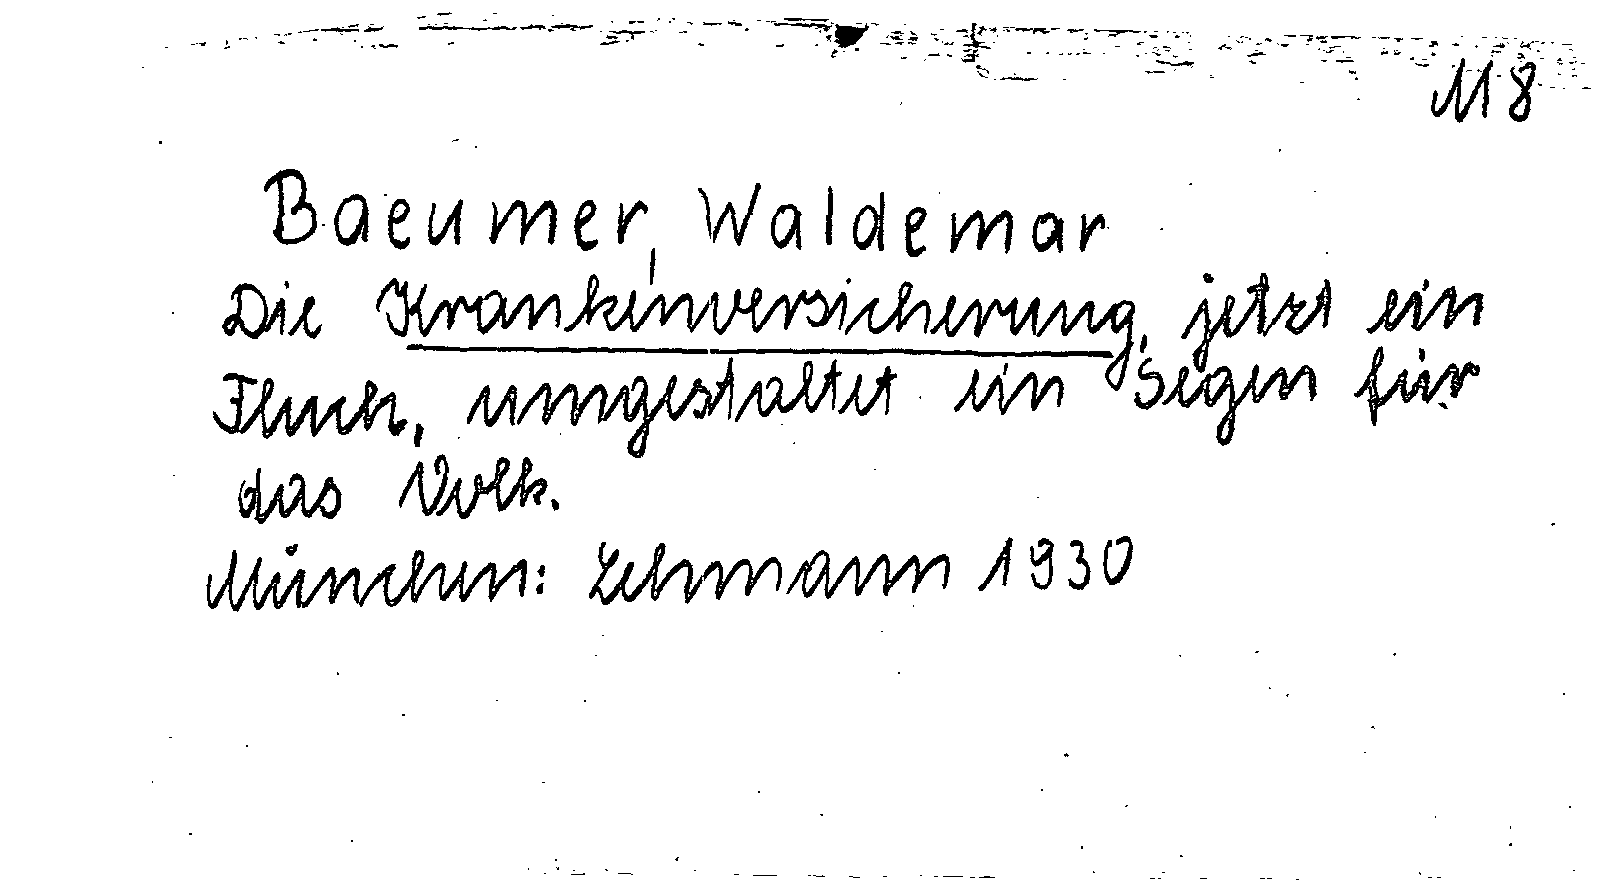 M 8
Baeumer, Waldemar
Die Krankenversicherung, jetzt ein
Fluch, umgestaltet ein Segen für
das Volk.
München: Lehmann 1930